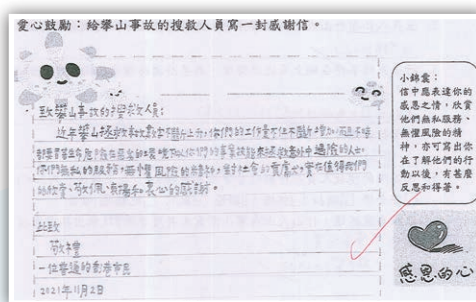 愛心鼓勵：給攀山事故的搜救人員寫一封感謝信。
致攀山事故的搜救人員：
近年攀山拯救事故數字不斷上升，你們的工作量不但不斷增加，而且不時
都要冒着生命危險在惡劣的環境下以你們的專業技能來拯救意外中遇險的人士。
你們無私的服務，無懼風險的精神，對社會的貢獻，實在值得我們
的欣賞、敬佩、表揚和衷心的感謝。
此致
敬禮
一位普通的香港市民
2021年11月2日
小錦囊：
信中應表達你的
感恩之情，欣賞
他們無私服務、
無懼風險的精
神，亦可寫出你
在了解他們的行
動以後，有甚麼
反思和得著。
感恩的心